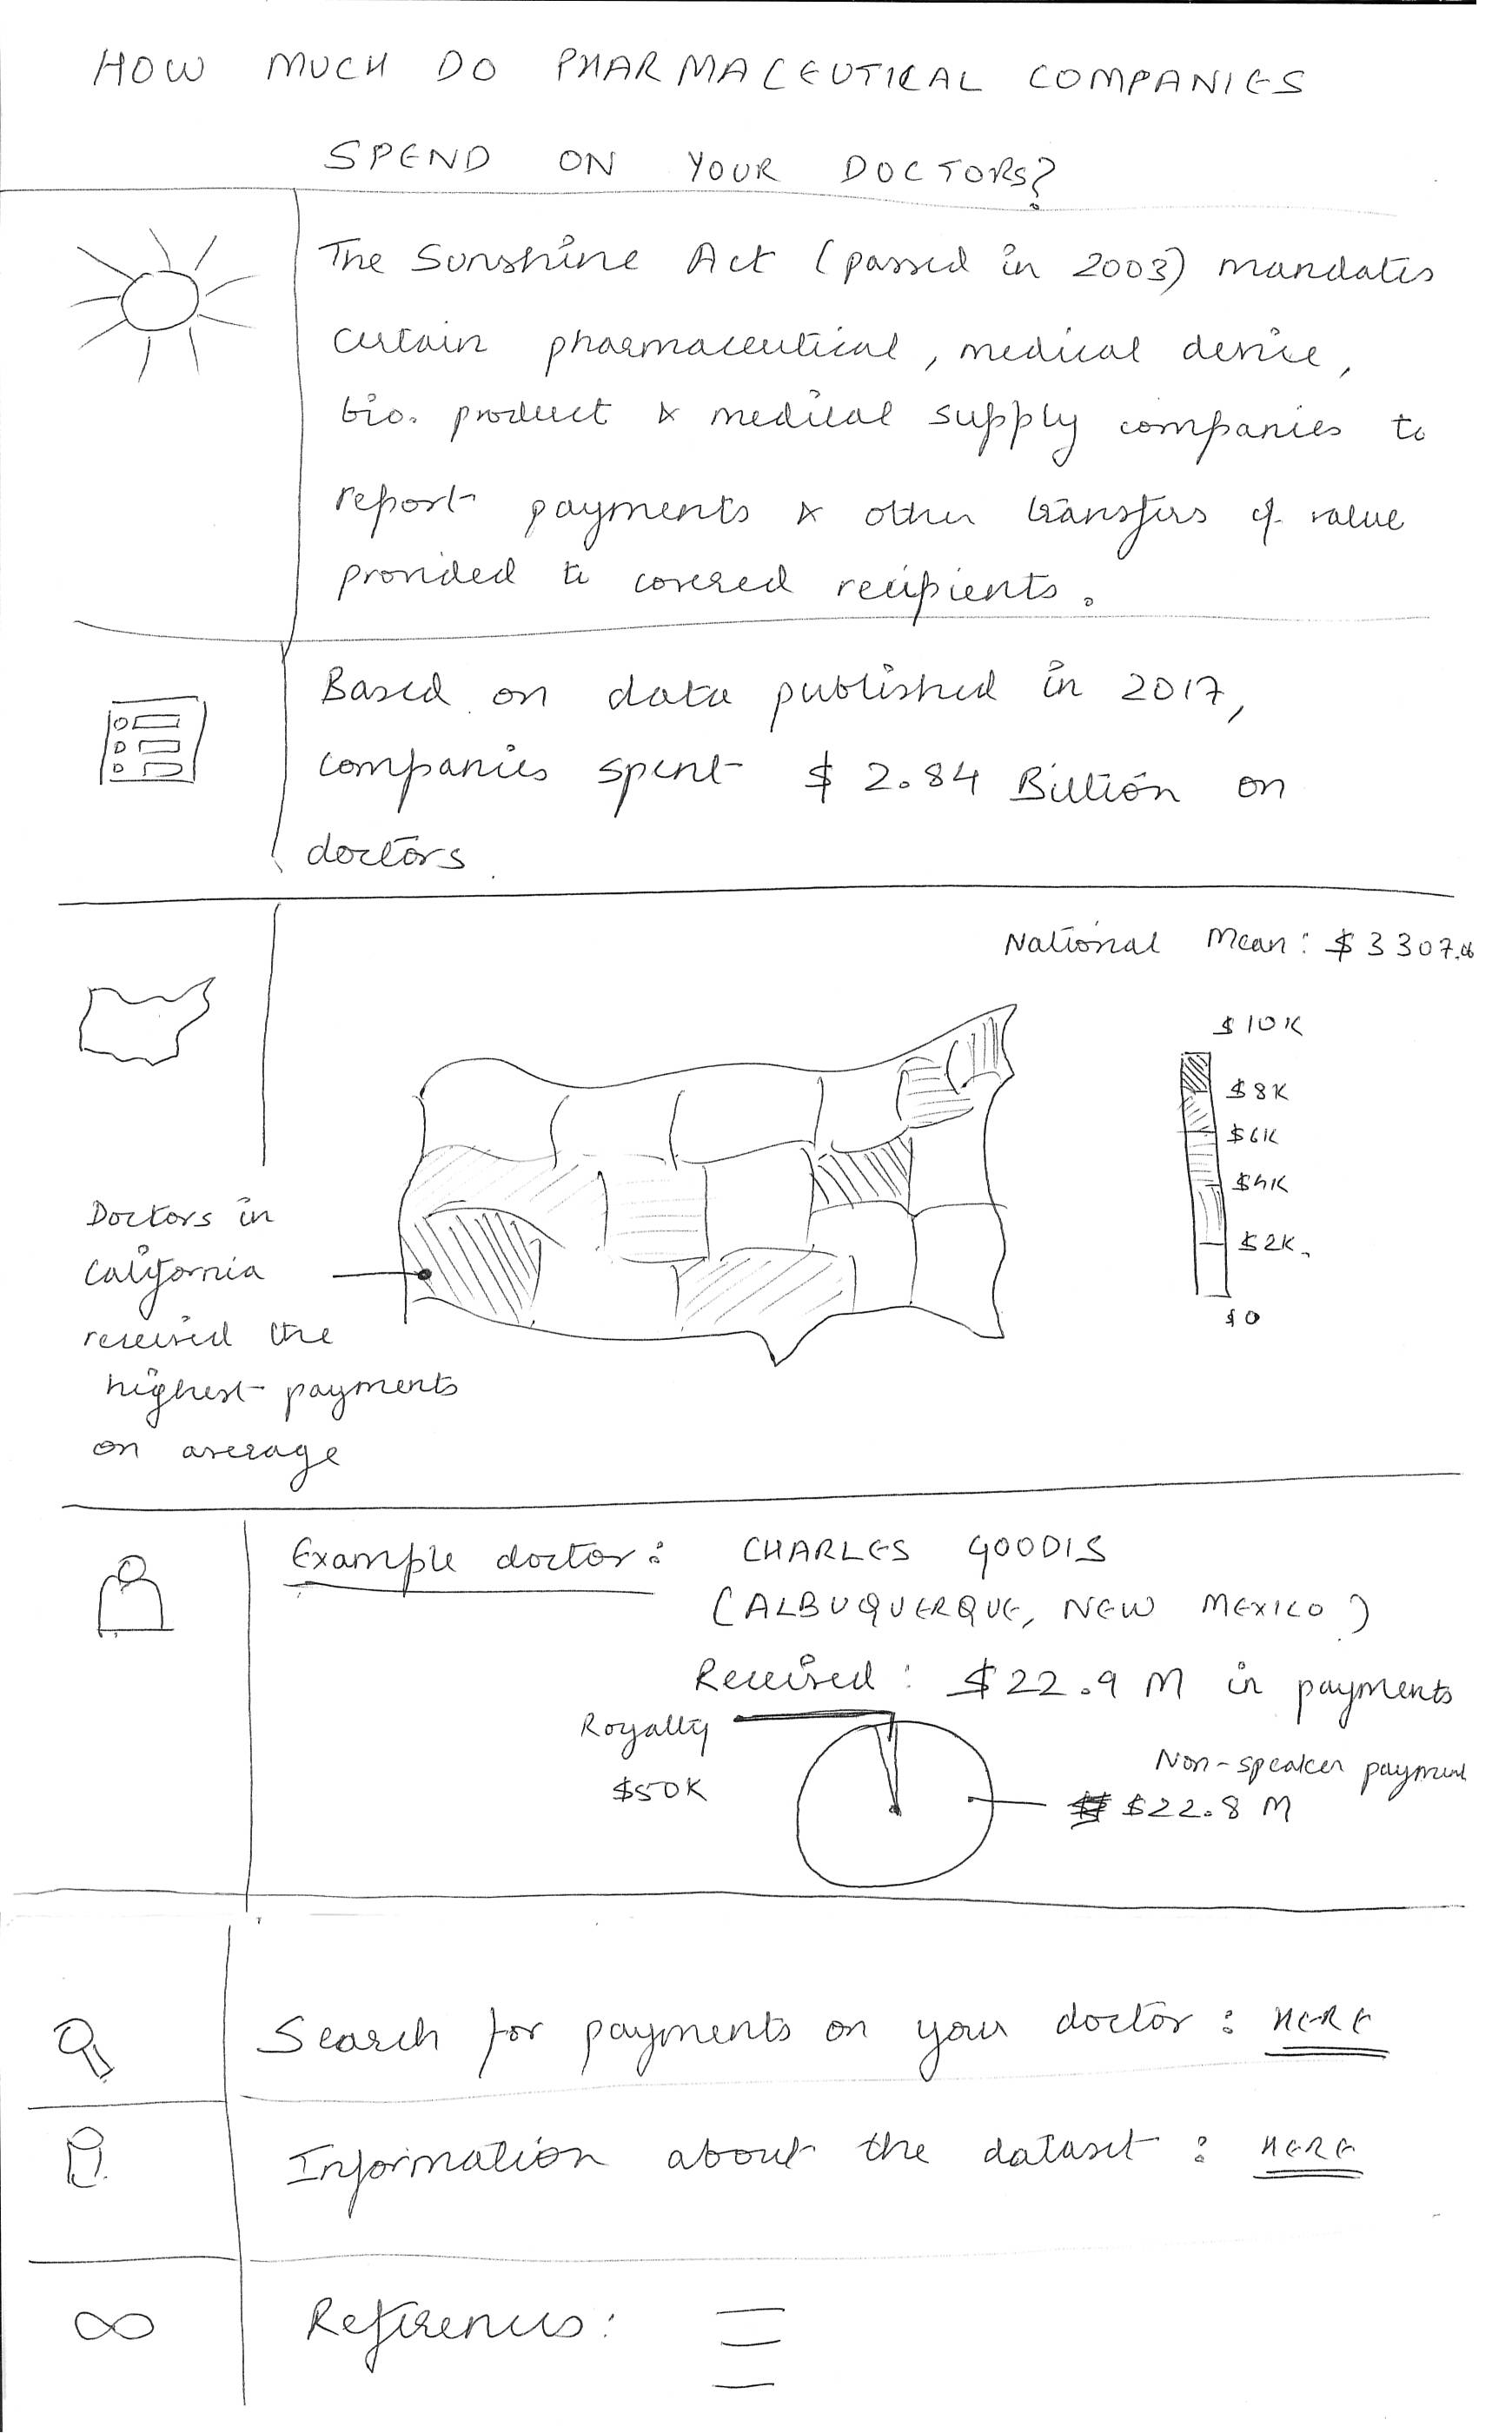 HOW MUCH DO PHARMACEUTICAL COMPANIES
SPEND ON YOUR DOCTORS?
The Sunshine Act (passed in 2003) mandates
certain pharmaceutical, medical device,
bio. product & medical supply companies to
report payments & other transfers of value
provided to covered recipients.
Based on data published in 2017,
companies spent $ 2.84 Billion on
doctors.
National Mean: $3307.
$10K
$8K
$6K
$4K
$2K
$0
Doctors in
California
received the
highest payments
on average
Example doctor: CHARLES GOODIS
(ALBUQUERQUE, NEW MEXICO)
Received: $22.9 M in payments
Royalty
$50K
Non-speaker payment
$22.8 M
Search for payments on your doctor: HERE
Information about the dataset: HERE
References: